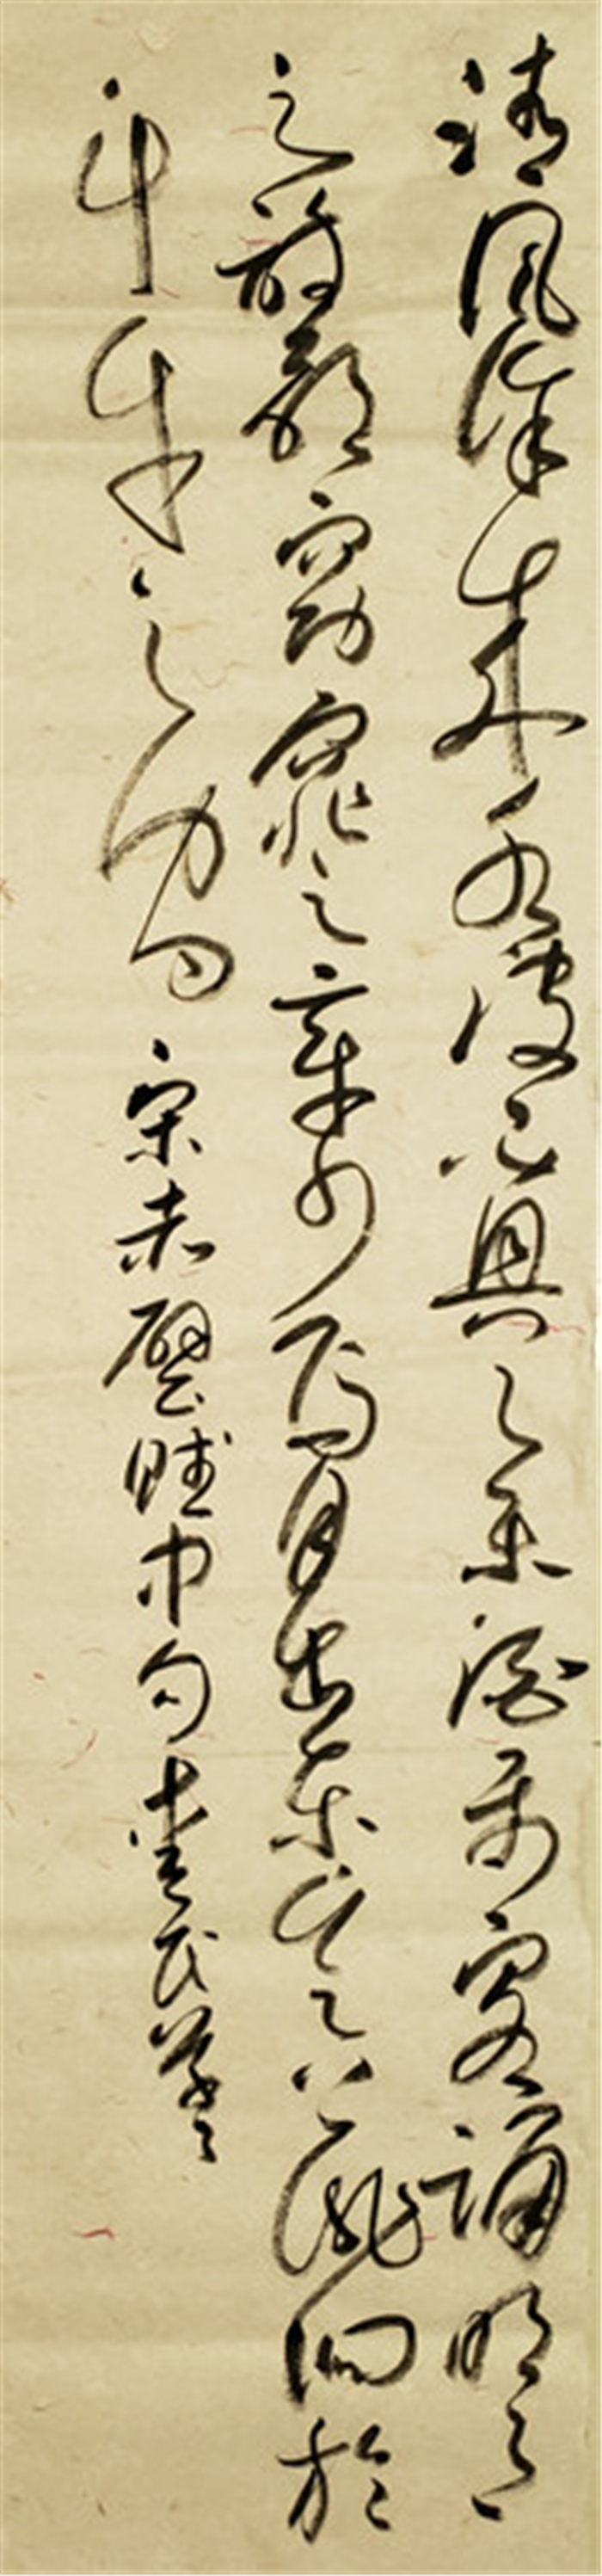 清風徐来水波不興舉酒属客誦明月
之詩歌窈窕之章少焉月出東山之上徘徊於
斗牛之間 宋赤壁賦中句